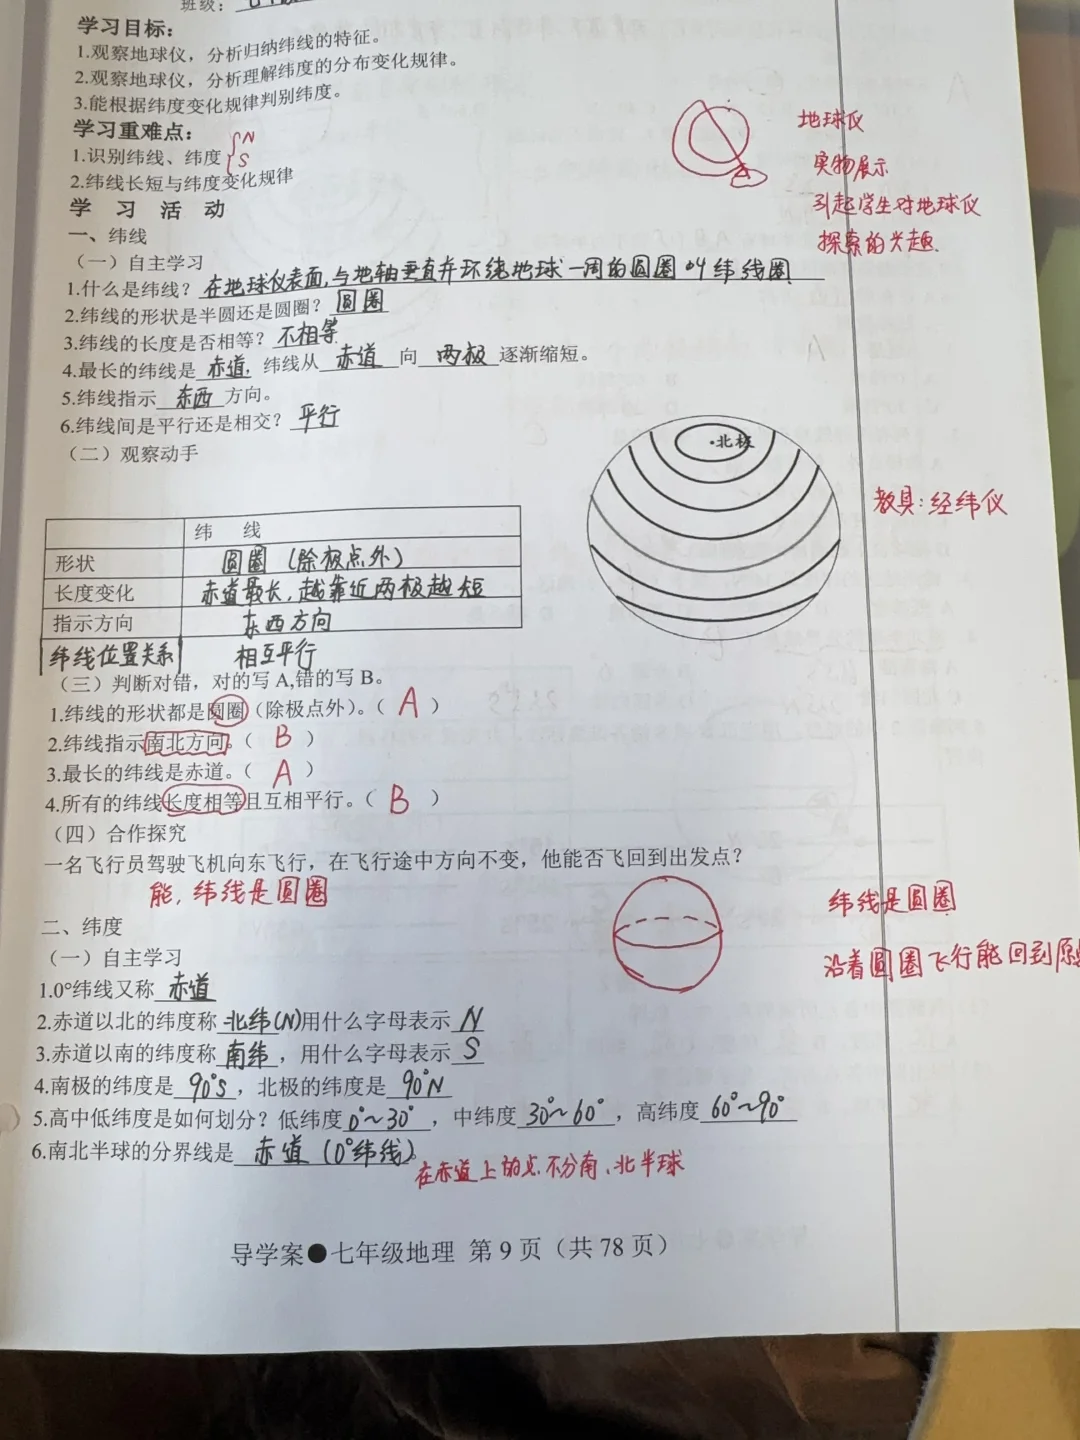 班级：
学习目标：
1.观察地球仪，分析归纳纬线的特征。
2.观察地球仪，分析理解纬度的分布变化规律。
3.能根据纬度变化规律判别纬度。
学习重难点：
1.识别纬线、纬度{N S
2.纬线长短与纬度变化规律
地球仪
实物展示
引起学生对地球仪
探索的兴趣.
学 习 活 动
一、纬线
（一）自主学习
1.什么是纬线？在地球仪表面,与地轴垂直并环绕地球一周的圆圈叫纬线圈
2.纬线的形状是半圆还是圆圈？圆圈
3.纬线的长度是否相等？不相等
4.最长的纬线是 赤道，纬线从 赤道 向 两极 逐渐缩短。
5.纬线指示 东西 方向。
6.纬线间是平行还是相交？平行
（二）观察动手
·北极
教具:经纬仪
纬 线
形状 圆圈（除极点外）
长度变化 赤道最长,越靠近两极越短
指示方向 东西方向
纬线位置关系 相互平行
（三）判断对错，对的写 A,错的写 B。
1.纬线的形状都是圆圈（除极点外）。（ A ）
2.纬线指示南北方向。（ B ）
3.最长的纬线是赤道。（ A ）
4.所有的纬线长度相等且互相平行。（ B ）
（四）合作探究
一名飞行员驾驶飞机向东飞行，在飞行途中方向不变，他能否飞回到出发点？
能,纬线是圆圈
纬线是圆圈
沿着圆圈飞行能回到原
二、纬度
（一）自主学习
1.0°纬线又称 赤道
2.赤道以北的纬度称 北纬(N)用什么字母表示 N
3.赤道以南的纬度称 南纬 ，用什么字母表示 S
4.南极的纬度是 90°S ，北极的纬度是 90°N
5.高中低纬度是如何划分？低纬度 0°~30° ，中纬度 30°~60° ，高纬度 60°~90°
6.南北半球的分界线是 赤道（0°纬线）。
在赤道上的点不分南、北半球
导学案●七年级地理 第 9 页（共 78 页）